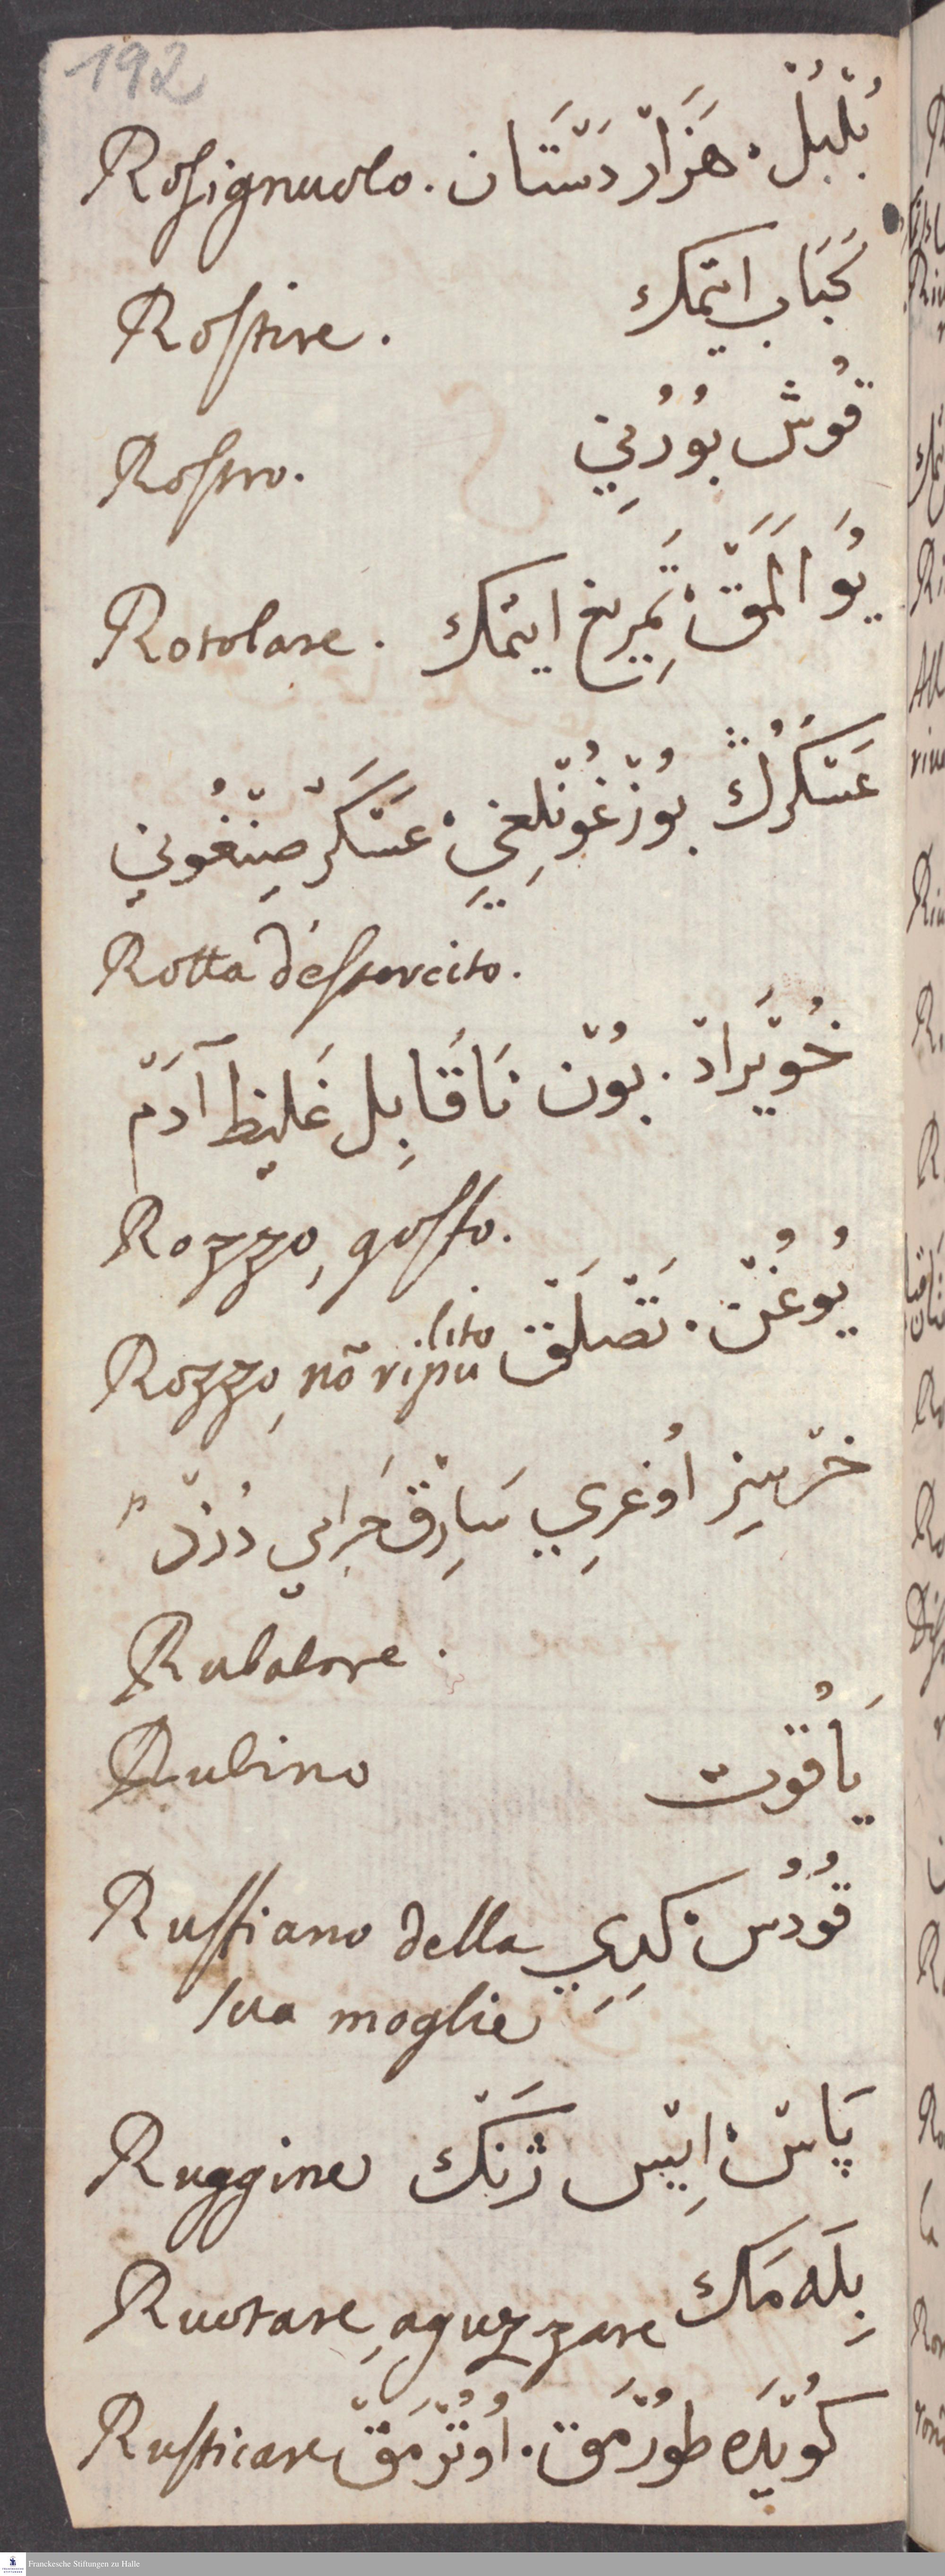 192
Rosignuolo. بُلْبُلْ. هَزَارْ دَسْتَان
Rostire. كَبَاب ايتمك
Rostro. قُوش بُورُنِي
Rotolare. يُوَالَمَقْ. تَمَرِيغ ايتمك
عَسْكَرُڭ بُوزْغُونْلِغِي. عَسْكَرْ صِنْغُونِي
Rotta d'essercito.
خُويْرَادْ. بُونْ نَاقَابِل غَلِيظ آدَمْ
Rozzo, goffo.
Rozzo, nõ ripulito يُوغُنْ. تَصْلَقْ
خَرْسِز اُوغرِي سَارِقْ حَرَامِي دُزدْ
Rubatore.
Rubino يَاقُوت
Ruffiano della قُودُسْ كِدِي
sua moglie
Ruggine پَاسْ. اِيِسْ ژَنْك
Ruotare, aguzzare بِلَه مَك
Rusticare كُويْدَه طُورْمَق. اُوتُرْمَقْ
Franckesche Stiftungen zu Halle